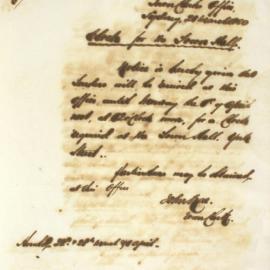 Town Clerk's Office,
Sydney, 2
Clock for the Town Hall.
Notice is hereby given that
Tenders will be received at this
Office, until Monday the 8th of April
next, at 12 o'Clock noon, for a Clock
required at the Town Hall. York
Street.
Particulars may be obtained,
at this Office
Town Clerk.
April.